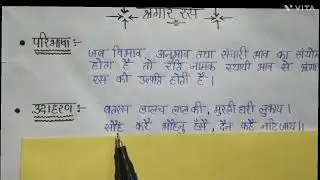 श्रृंगार रस
परिभाषा :-
जब विभाव, अनुभाव तथा संचारी भाव का संयोग
होता है तो रति नामक स्थायी भाव से श्रृंगार
रस की उत्पत्ति होती है।
उदाहरण :-
बतरस लालच लाल की, मुरली धरी लुकाय।
सौंह करै भौंहनु हँसै, दैन कहै नटि जाय।।